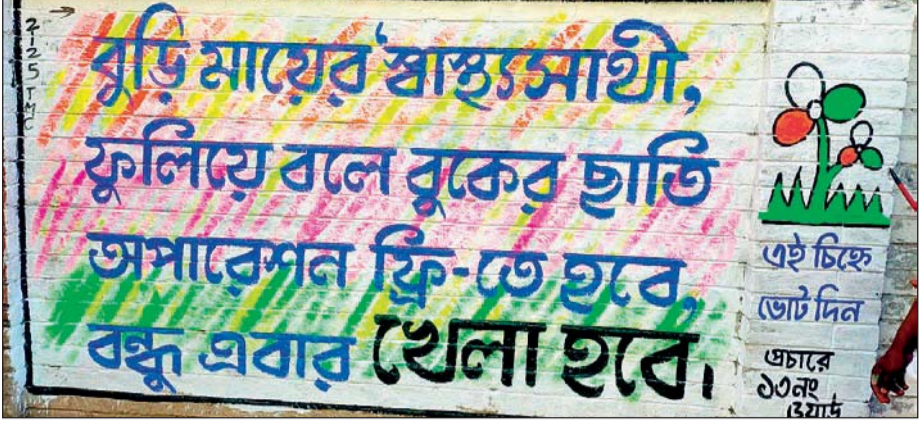 2125 TMC
বুড়ি মায়ের 'স্বাস্থ্যসাথী,
ফুলিয়ে বলে বুকের ছাতি
অপারেশন ফ্রি-তে হবে,
বন্ধু এবার খেলা হবে।
এই চিহ্নে
ভোট দিন
প্রচারে
১৩নং
ওয়ার্ড